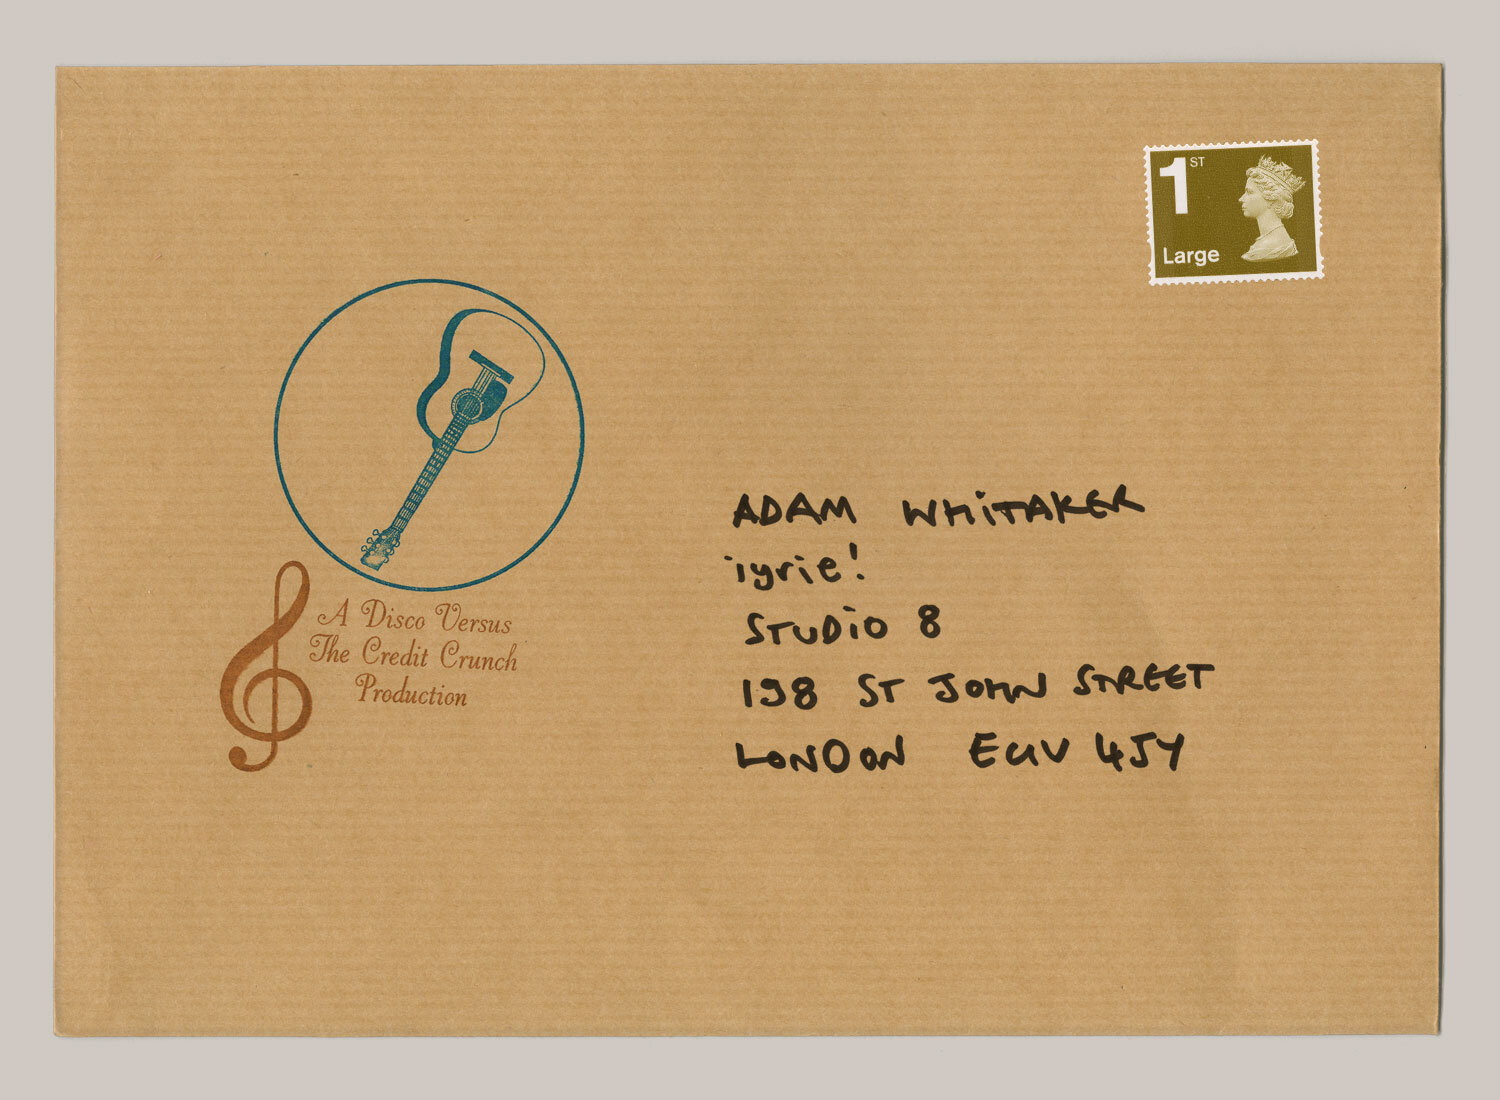 1ST
Large
A Disco Versus
The Credit Crunch
Production
ADAM WHITAKER
iyrie!
STUDIO 8
198 ST JOHN STREET
LONDON EC1V 4JY